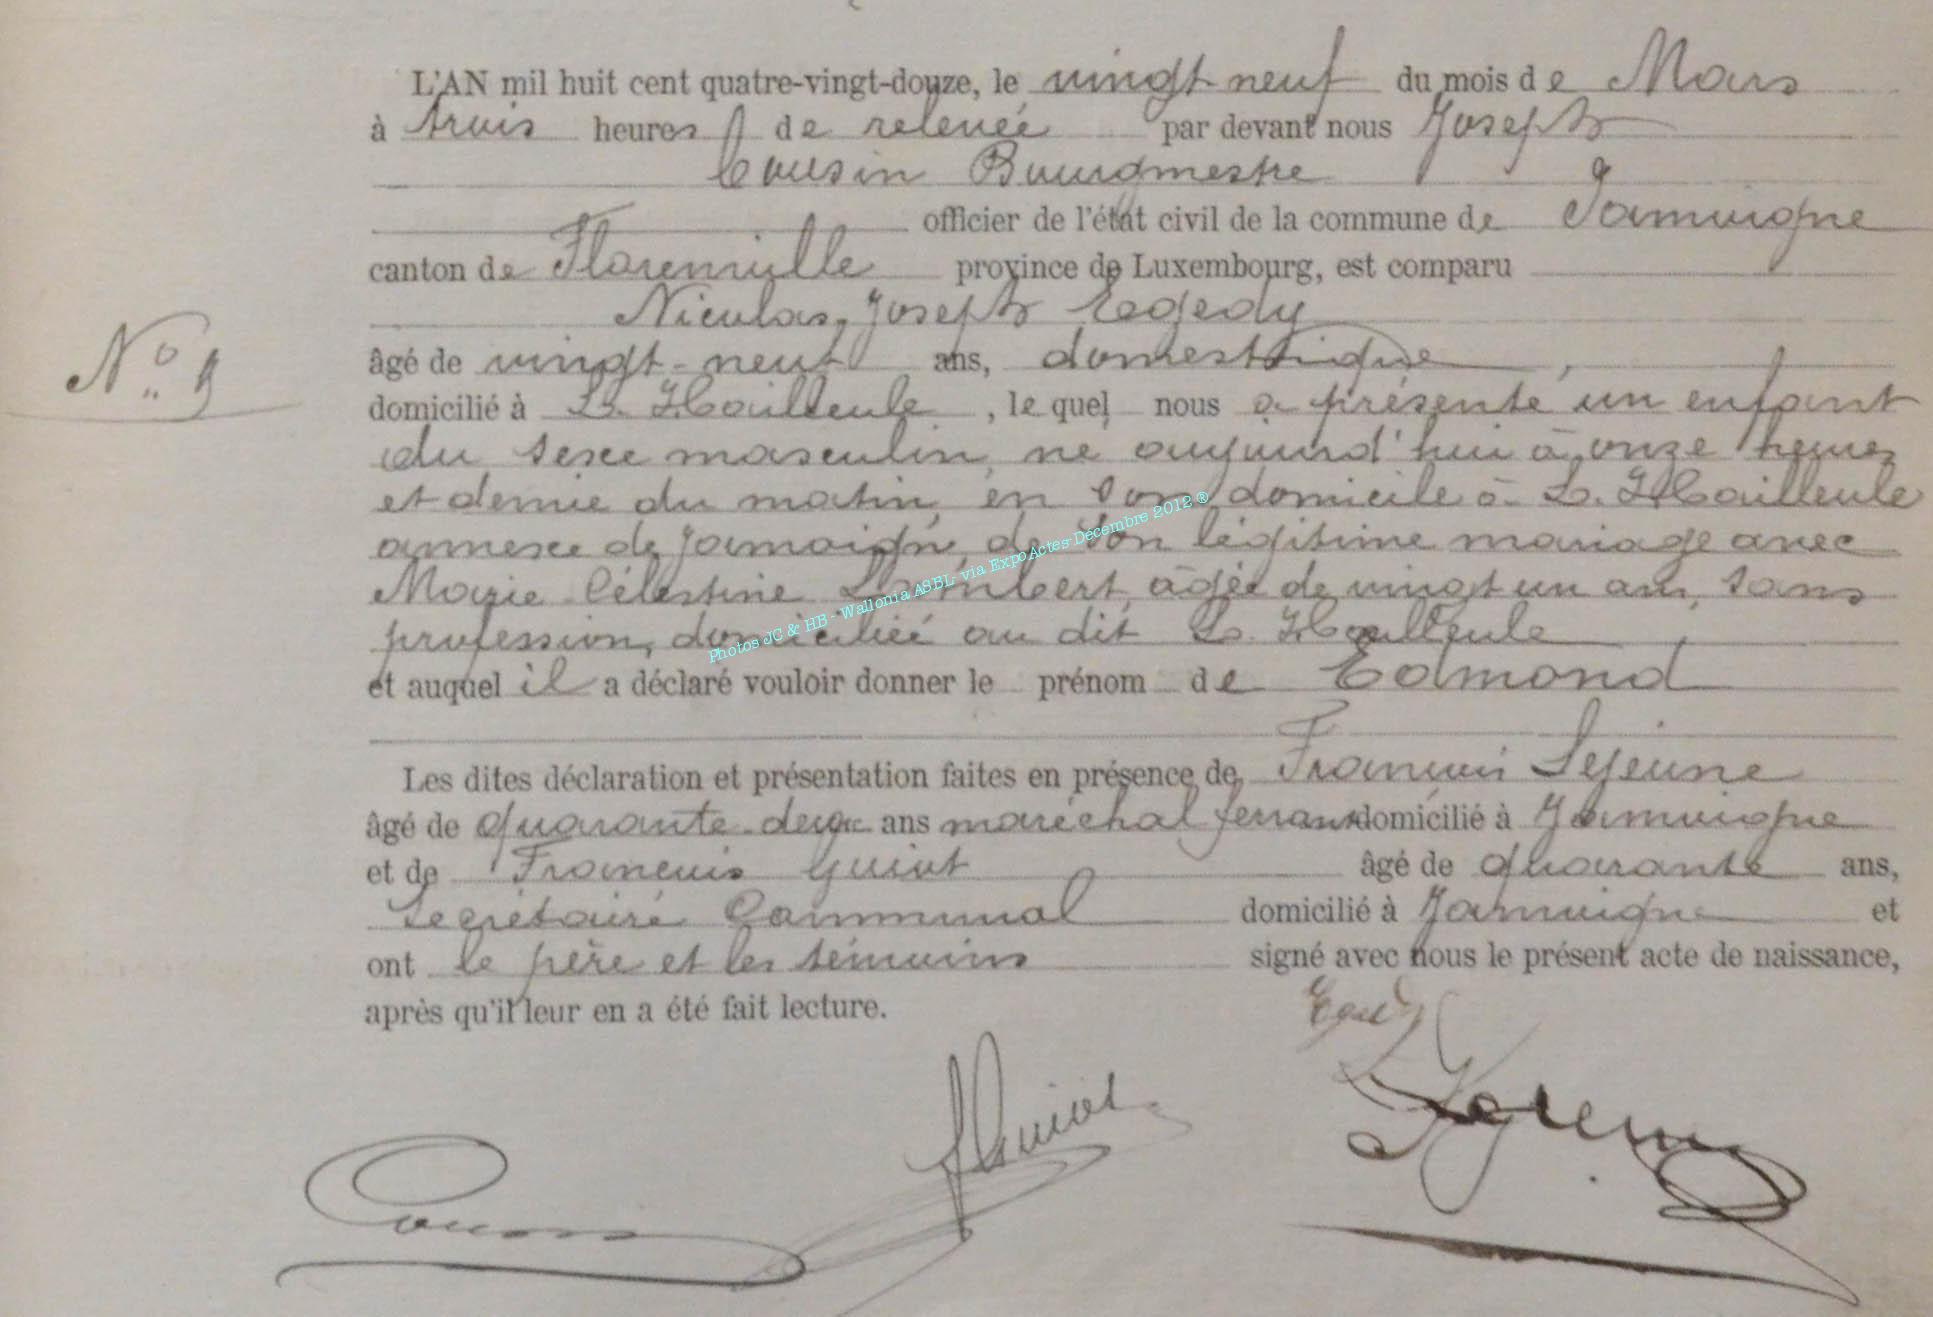 L'AN mil huit cent quatre-vingt-douze, le vingt neuf du mois de Mars
à trois heures de relevée par devant nous Joseph
Cousin Bourgmestre
officier de l'état civil de la commune de Jamoigne
canton de Florenville province de Luxembourg, est comparu
Nicolas, Joseph Egedy
N° 9
âgé de vingt-neuf ans, domestique,
domicilié à La Hailleule, lequel nous a présenté un enfant
du sexe masculin, né aujourd'hui à onze heures
et demie du matin, en son domicile à La Hailleule
annexe de Jamoigne, de son légitime mariage avec
Marie Célestine Lambert, âgée de vingt un ans, sans
profession, domiciliée au dit La Hailleule,
et auquel il a déclaré vouloir donner le prénom de Edmond
Les dites déclaration et présentation faites en présence de François Lejeune
âgé de quarante deux ans maréchal ferrant domicilié à Jamoigne
et de François Guiot âgé de quarante ans,
Secrétaire Communal domicilié à Jamoigne et
ont le père et les témoins signé avec nous le présent acte de naissance,
après qu'il leur en a été fait lecture.
Photos JC & HB - Wallonia ASBL via ExpoActes-Décembre 2012 ®
F Guiot
Lejeune
Cousin